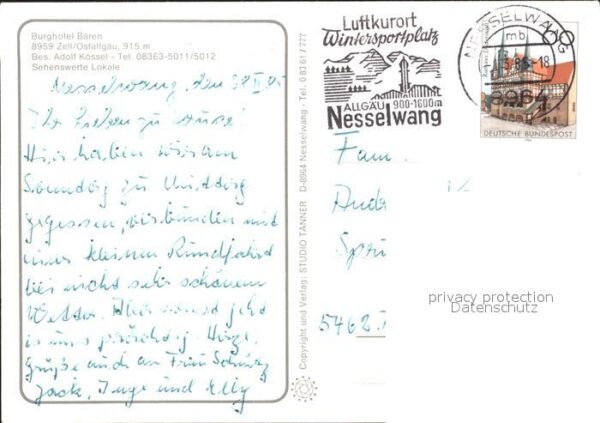 Burghotel Bären
8959 Zell/Ostallgäu, 915 m
Bes. Adolf Kössel - Tel. 08363-5011/5012
Sehenswerte Lokale
Nesselwang, den
Ihr Lieben zu Hause!
Hier haben wir am
Sonntag zu Mittag
gegessen, verbunden mit
einer kleinen Rundfahrt
bei nicht sehr schönem
Wetter. Aber sonst geht
es uns prächtig. Herzl.
Grüße auch an Frau
Jack, Inge und Elly
Copyright und Verlag: STUDIO TANNER D-8964 Nesselwang - Tel. 0 83 61 / 777
Luftkurort
Wintersportplatz
ALLGÄU 900-1600m
Nesselwang
NESSELWANG
mb
-18
8964
60
DEUTSCHE BUNDESPOST
Fam
5462
privacy protection
Datenschutz